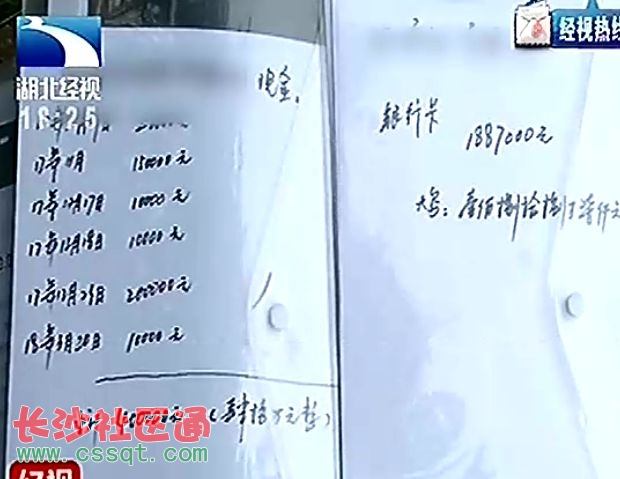 湖北经视
16:25
经视热线
现金。
17年11月 150000元
17年12月17日 10000元
17年12月18日 10000元
17年12月23日 200000元
18年3月20日 10000元
400000元（肆拾万元整）
银行卡
1887000元
大写：壹佰捌拾捌万柒仟元
长沙社区通
www.cssqt.com
经视